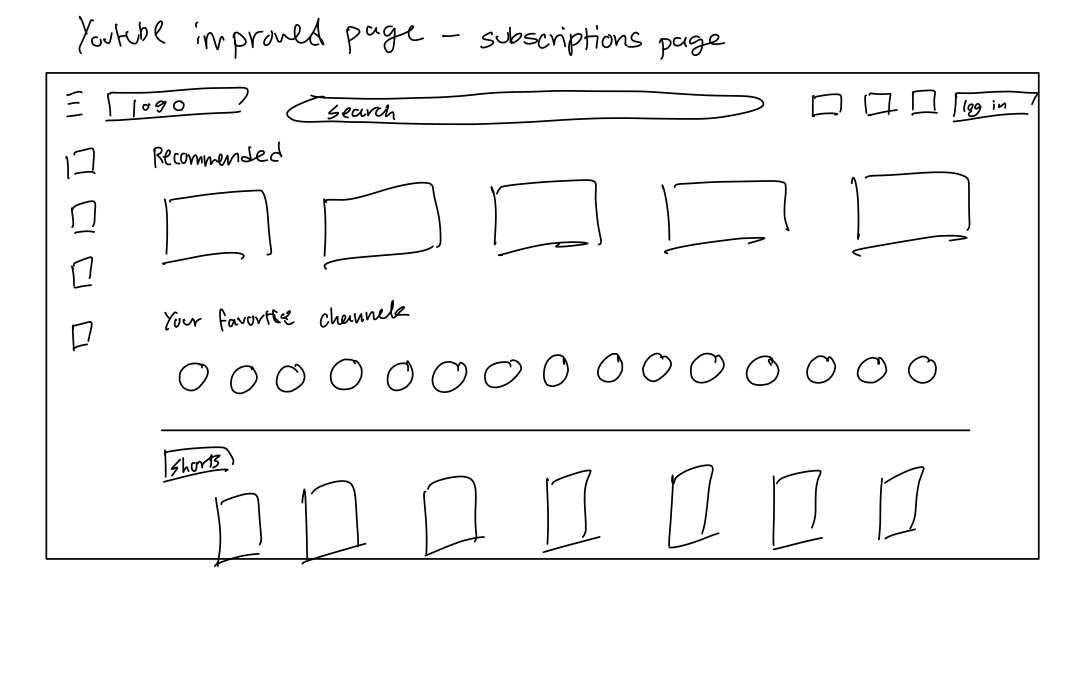 Youtube improved page - subscriptions page
logo
search
log in
Recommended
Your favorite channels
shorts